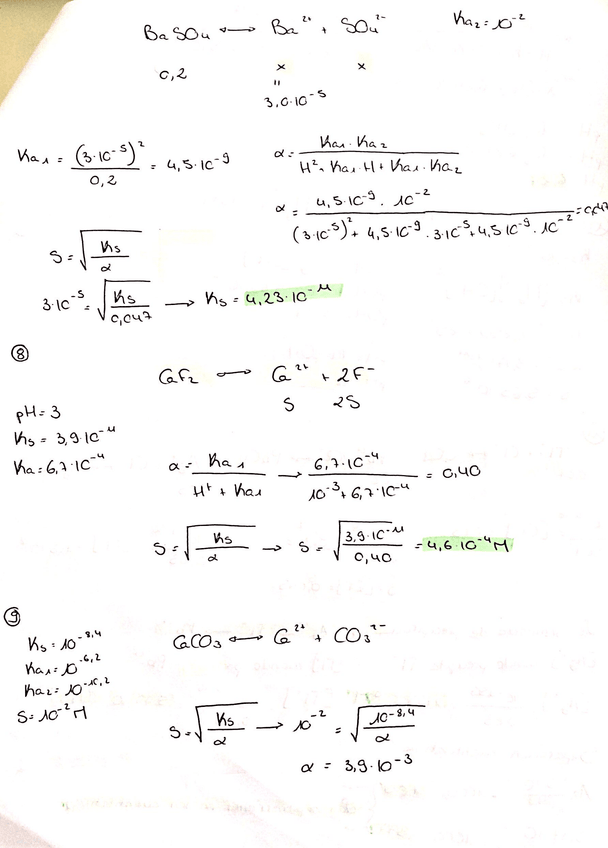 BaSO4 ⟷ Ba²⁺ + SO4²⁻ Ka2 = 10⁻²
0,2 x x
"
3,0·10⁻⁵
Ka1 = (3·10⁻⁵)² / 0,2 = 4,5·10⁻⁹
α = Ka1·Ka2 / H²+ Ka1·H + Ka1·Ka2
α = 4,5·10⁻⁹ · 10⁻² / (3·10⁻⁵)² + 4,5·10⁻⁹ · 3·10⁻⁵ + 4,5·10⁻⁹ · 10⁻² = 0,047
S = √(Ks / α)
3·10⁻⁵ = √(Ks / 0,047) → Ks = 4,23·10⁻¹¹
⑧
CaF2 ⟷ Ca²⁺ + 2F⁻
S 2S
pH = 3
Ks = 3,9·10⁻¹¹
Ka = 6,7·10⁻⁴
α = Ka1 / H⁺ + Ka1 → 6,7·10⁻⁴ / 10⁻³ + 6,7·10⁻⁴ = 0,40
S = √(Ks / α) → S = √(3,9·10⁻¹¹ / 0,40) = 4,6·10⁻⁴ M
⑨
Ks = 10⁻⁸,⁴
Ka1 = 10⁻⁶,²
Ka2 = 10⁻¹⁰,²
S = 10⁻² M
CaCO3 ⟷ Ca²⁺ + CO3²⁻
S = √(Ks / α) → 10⁻² = √(10⁻⁸,⁴ / α)
α = 3,9·10⁻³